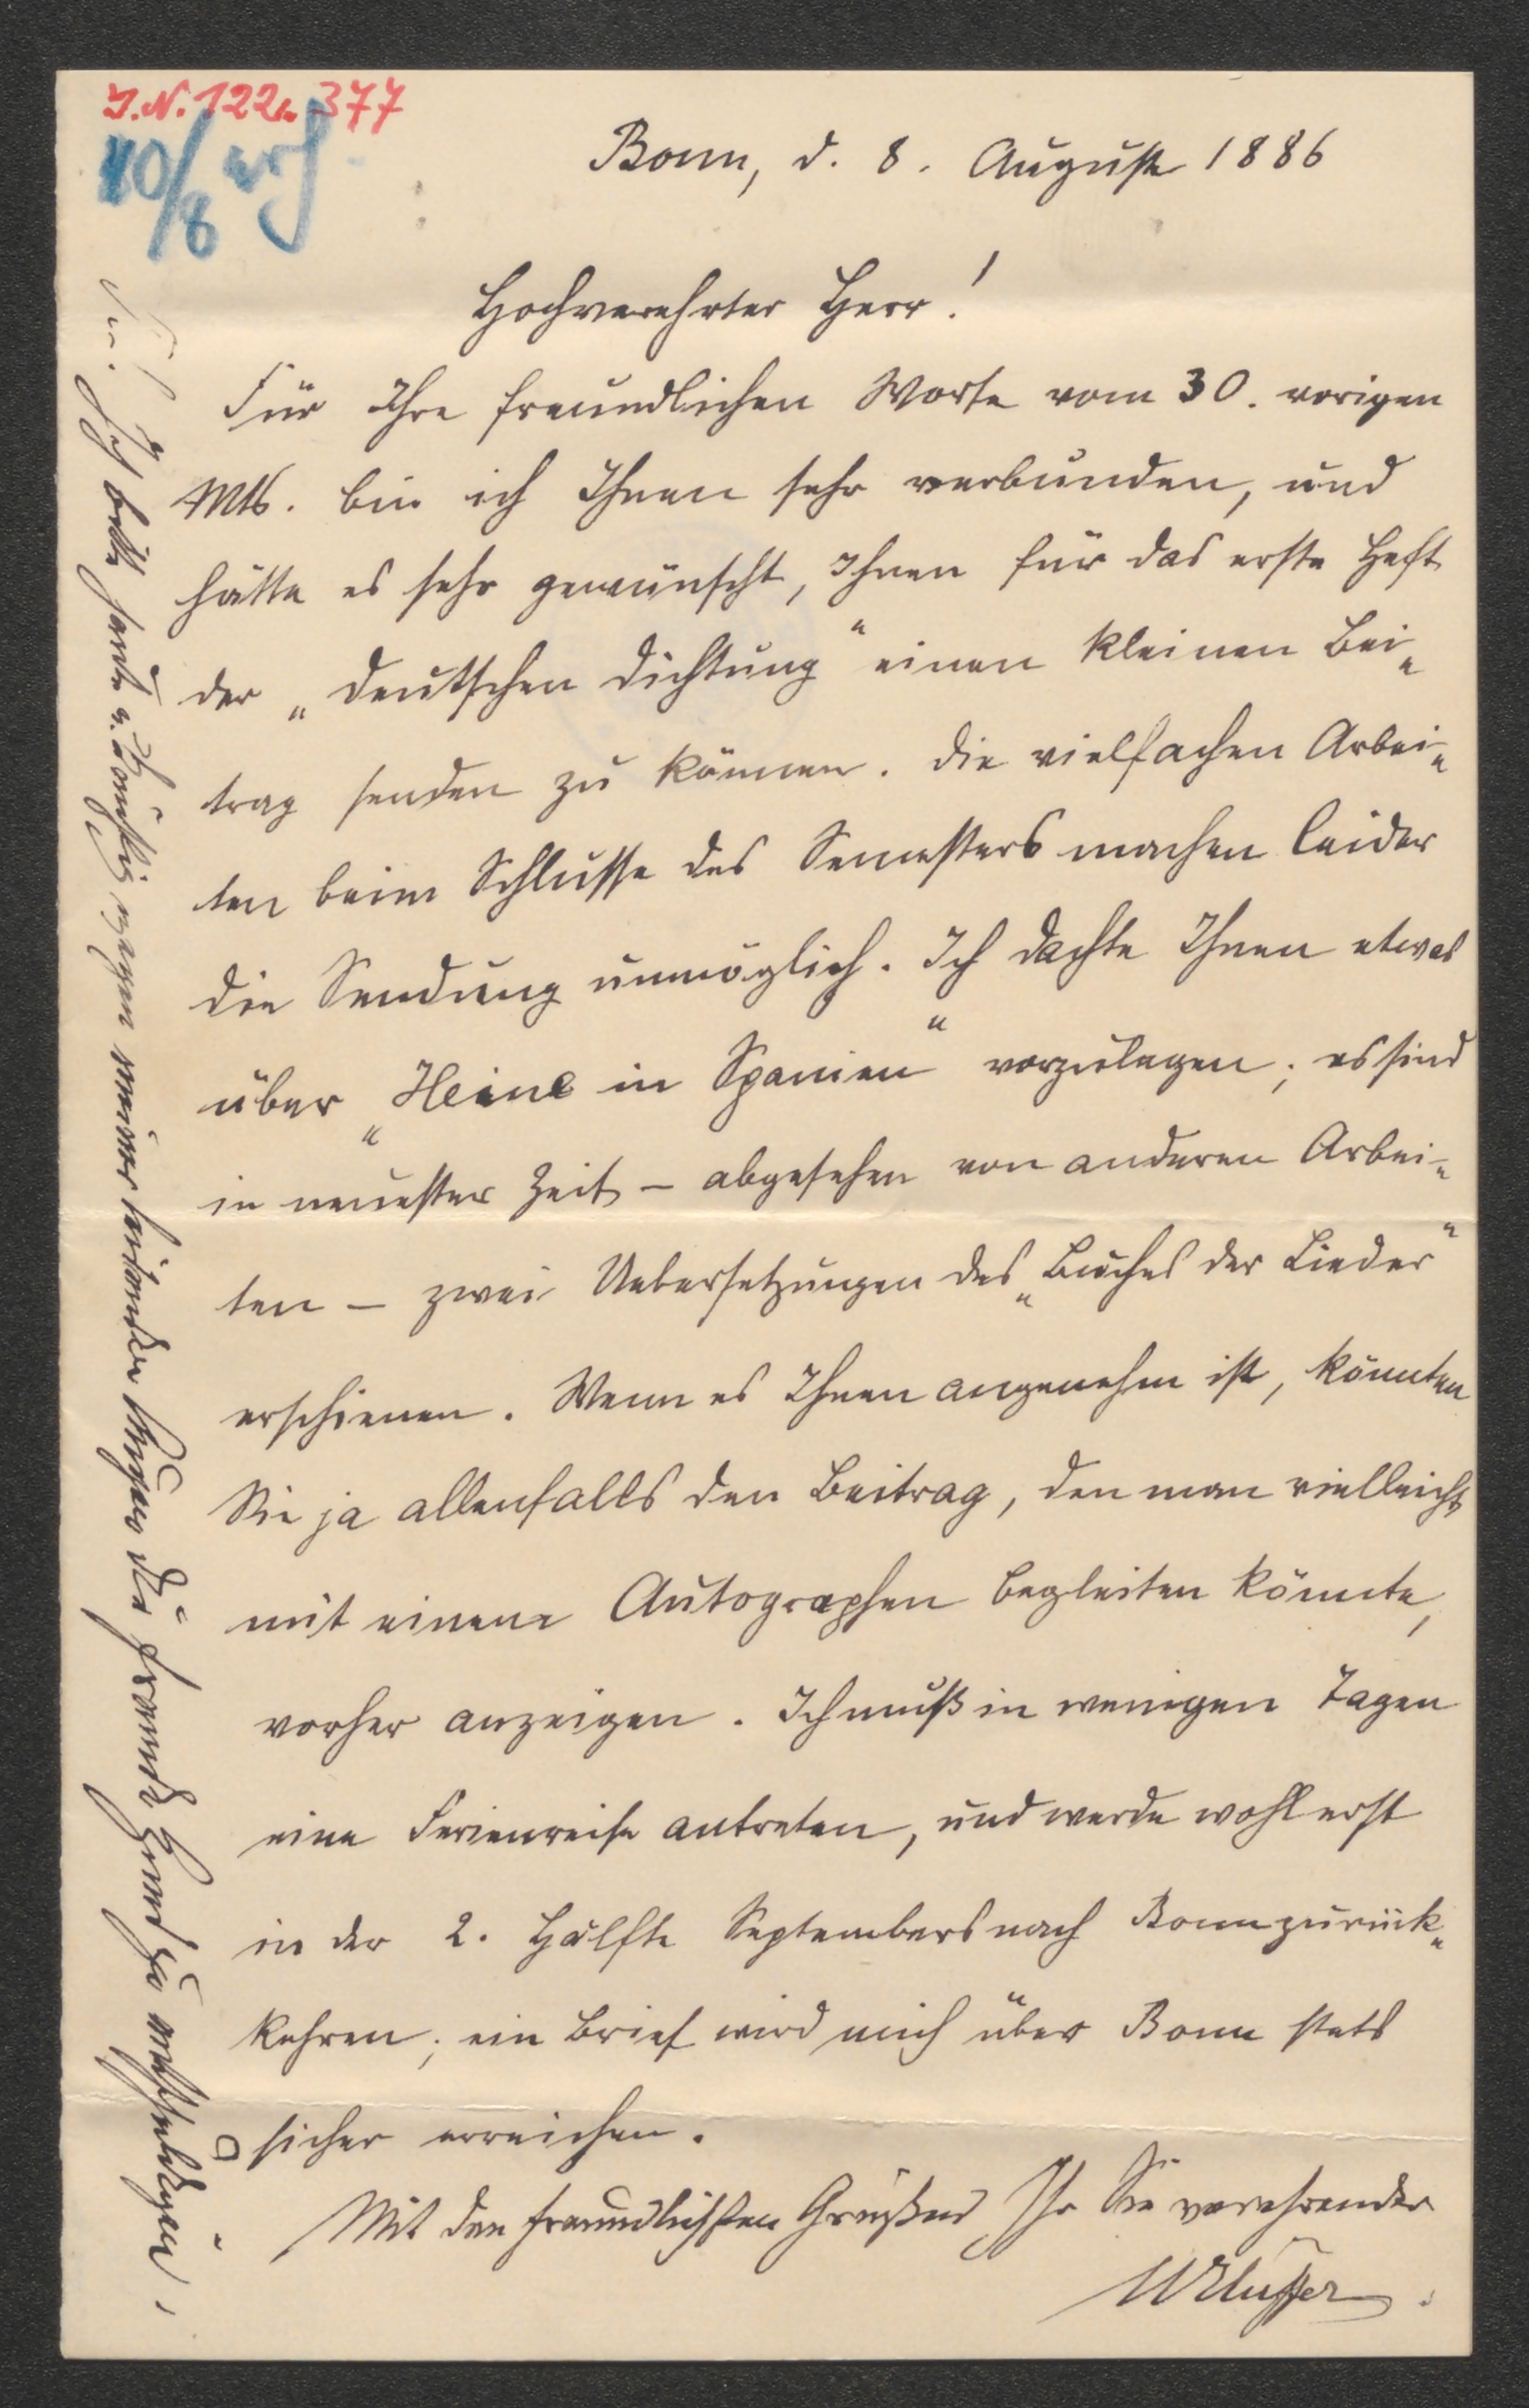 I.N. 122.377
10/8 erh
Bonn, d. 8. August 1886
Hochverehrter Herr!
Für Ihre freundlichen Worte vom 30. vorigen
Mts. bin ich Ihnen sehr verbunden, und
hätte es sehr gewünscht, Ihnen für das erste Heft
der „Deutschen Dichtung“ einen kleinen Bei-
trag senden zu können. Die vielfachen Arbei-
ten beim Schlusse des Semesters machen leider
die Sendung unmöglich. Ich dachte Ihnen etwas
über „Heine in Spanien“ vorzulegen; es sind
in neuester Zeit – abgesehen von anderen Arbei-
ten – zwei Uebersetzungen des „Buches der Lieder“
erschienen. Wenn es Ihnen angenehm ist, könnten
Sie ja allenfalls den Beitrag, den man vielleicht
mit einem Autographen begleiten könnte,
vorher anzeigen. Ich muß in wenigen Tagen
eine Ferienreise antreten, und werde wohl erst
in der 2. Hälfte Septembers nach Bonn zurück-
kehren; ein Brief wird mich über Bonn stets
sicher erreichen.
Mit den freundlichsten Grüßen Ihr Sie verehrender
HHüffer.
Ich bitte heute u. künftig wegen meiner leidenden Augen die fremde Hand zu entschuldigen.